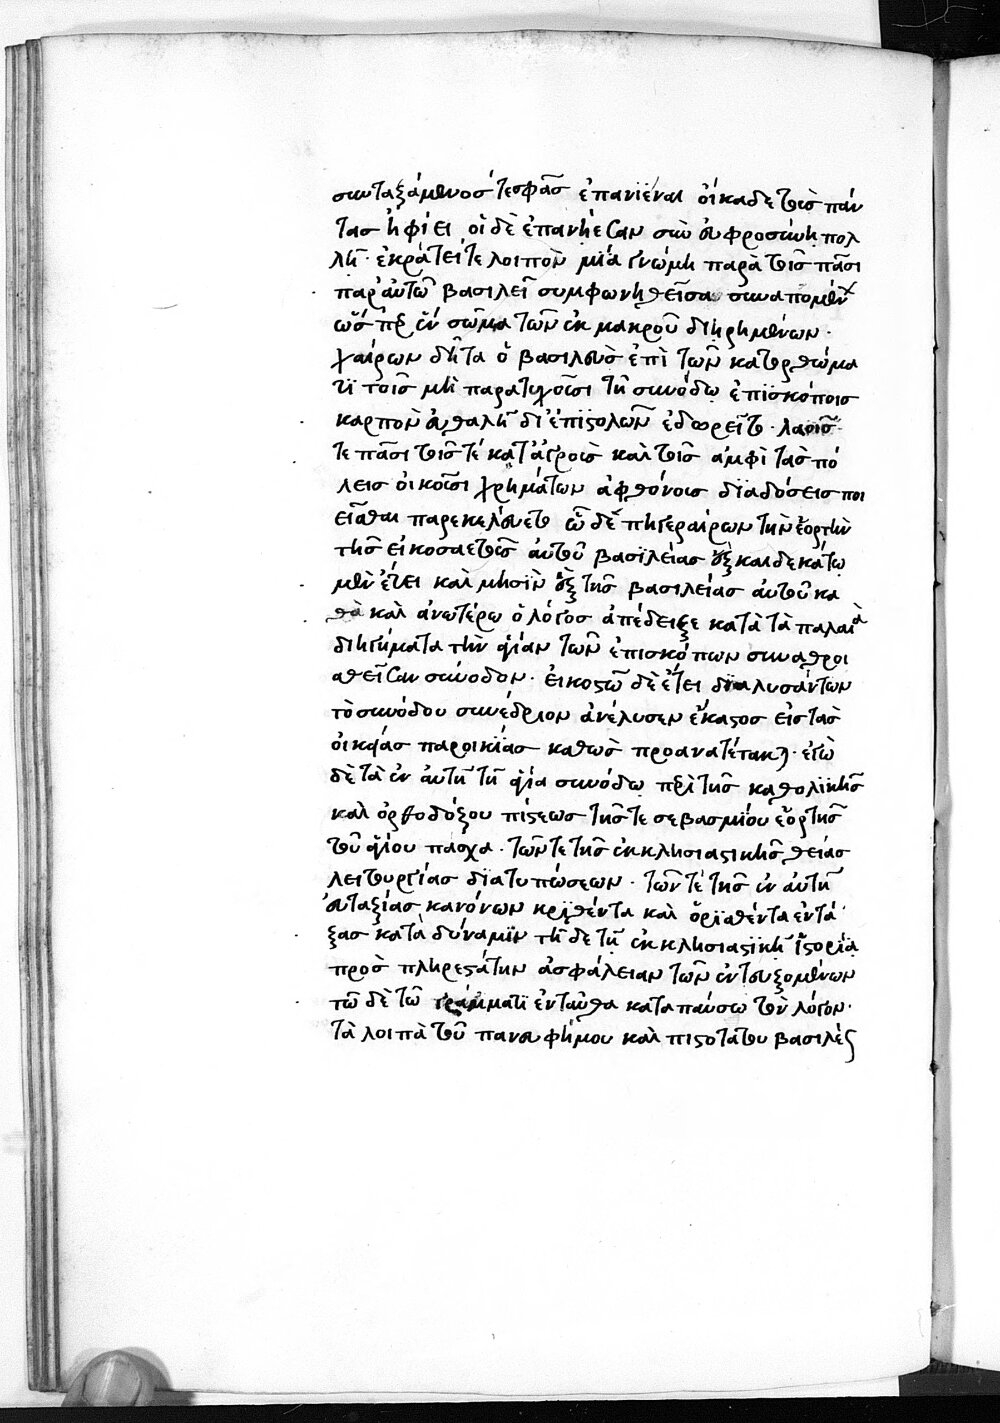 συνταξάμενός τε σφᾶς ἐπανϊέναι οἴκαδε τοὺς πάν
τας ἠφίει οἱ δὲ ἐπανήεσαν σὺν εὐφροσύνη πολ
λῆ· ἐκράτει τε λοιπὸν μία γνώμη παρὰ τοῖς πᾶσι
παρ' αὐτῶ βασιλεῖ συμφωνηθεῖσα συναπομεν
ὥσπερ ἓν σῶμα τῶν ἐκ μακροῦ διηρημένων·
χαίρων δῆτα ὁ βασιλεὺς ἐπὶ τῶν κατορθώμα
τι τοῖς μὴ παρατυχοῦσι τῆ συνόδω ἐπϊσκόποις
καρπὸν εὐθαλῆ δι' ἐπιστολῶν ἐδωρεῖτο· λαοῖς
τε πᾶσι τοῖς τε κατ' ἀγροὺς καὶ τοῖς ἀμφὶ τὰς πό
λεις οἰκοῦσι χρημάτων ἀφθόνοις διαδόσεις ποι
εῖσθαι παρεκελεύετο ὧδέ πη γεραίρων τὴν ἑορτὴν
τῆς εἰκοσαετοῦς αὐτοῦ βασϊλείας ἑξκαιδεκάτω
μὲν ἔτει καὶ μησὶν ἓξ τῆς βασιλείας αὐτοῦ κα
θὰ καὶ ἀνωτέρω ὁ λόγος ἀπέδειξε κατὰ τὰ παλαιὰ
διηγήματα τὴν ἁγίαν τῶν ἐπισκόπων συναθροι
σθεῖσαν σύνοδον· εἰκοστῶ δὲ ἔτει διαλυσάντων
τὸ συνόδου συνέδριον ἀνέλυσεν ἕκαστος εἰς τὰς
οἰκείας παροικίας καθὼς προανατέτακται· ἐγὼ
δὲ τὰ ἐν αὐτῆ τῆ ἁγία συνόδω περὶ τῆς καθολϊκῆς
καὶ ὀρθοδόξου πίστεως τῆς τε σεβασμίου ἑορτῆς
τοῦ ἁγίου πάσχα· τῶν τε τῆς ἐκκλησιαστικῆς θείας
λειτουργίας διατυπώσεων· τῶν τε τῆς ἐν αὐτῆ
εὐταξίας κανόνων κριθέντα καὶ ὁρϊσθέντα ἐντά
ξας κατὰ δύναμϊν τῆδε τῆ ἐκκλησιαστϊκῆ ἱστορία
πρὸς πληρεστάτην ἀσφάλειαν τῶν ἐντευξομένων
τῶδε τῶ γράμματι ἐνταῦθα καταπαύσω τὸν λόγον·
τὰ λοιπὰ τοῦ πανευφήμου καὶ πιστοτάτου βασιλέως